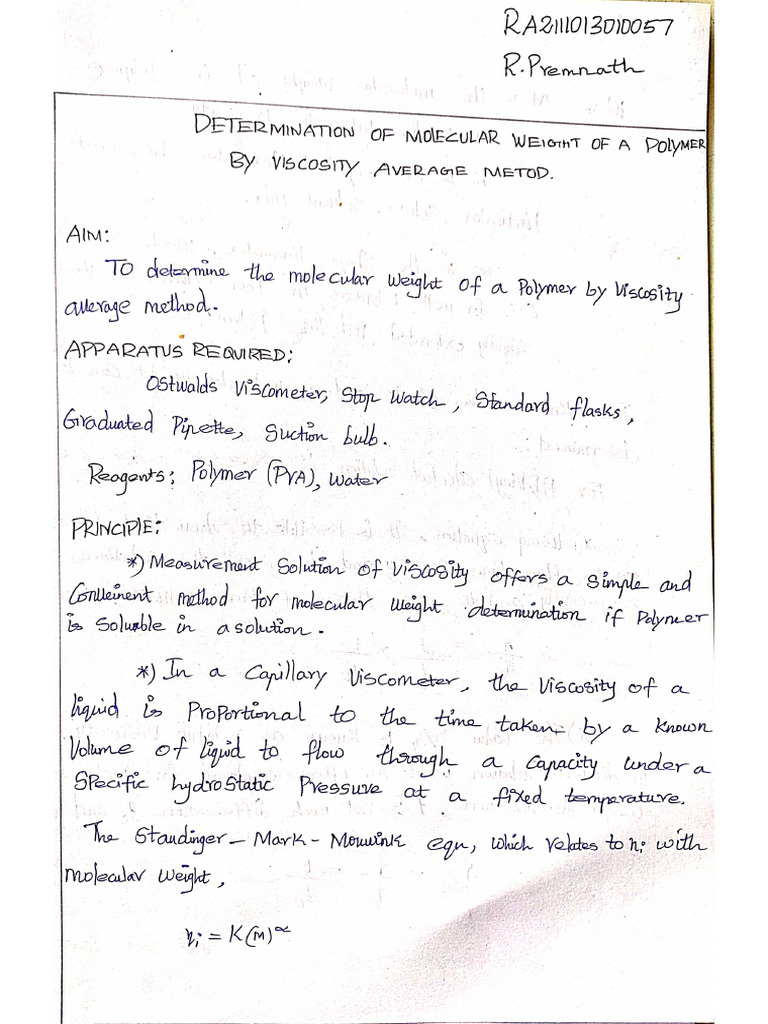 RA2111013010057
R.Premnath
DETERMINATION OF MOLECULAR WEIGHT OF A POLYMER
BY VISCOSITY AVERAGE METOD.
AIM:
TO determine the molecular weight of a Polymer by Viscosity
average method.
APPARATUS REQUIRED:
Ostwalds Viscometer, Stop Watch, Standard flasks,
Graduated Pipette, Suction bulb.
Reagents: Polymer (PVA), water
PRINCIPLE:
*) Measurement Solution of Viscosity offers a simple and
Conveinent method for molecular weight determination if Polymer
is soluble in a solution.
*) In a Capillary Viscometer, the Viscosity of a
liquid is Proportional to the time taken by a known
Volume of liquid to flow through a capacity under a
Specific hydrostatic Pressure at a fixed temperature.
The Staudinger - Mark - Mouwink equ, which relates to ηi with
molecular weight,
ηi = K(M)^α